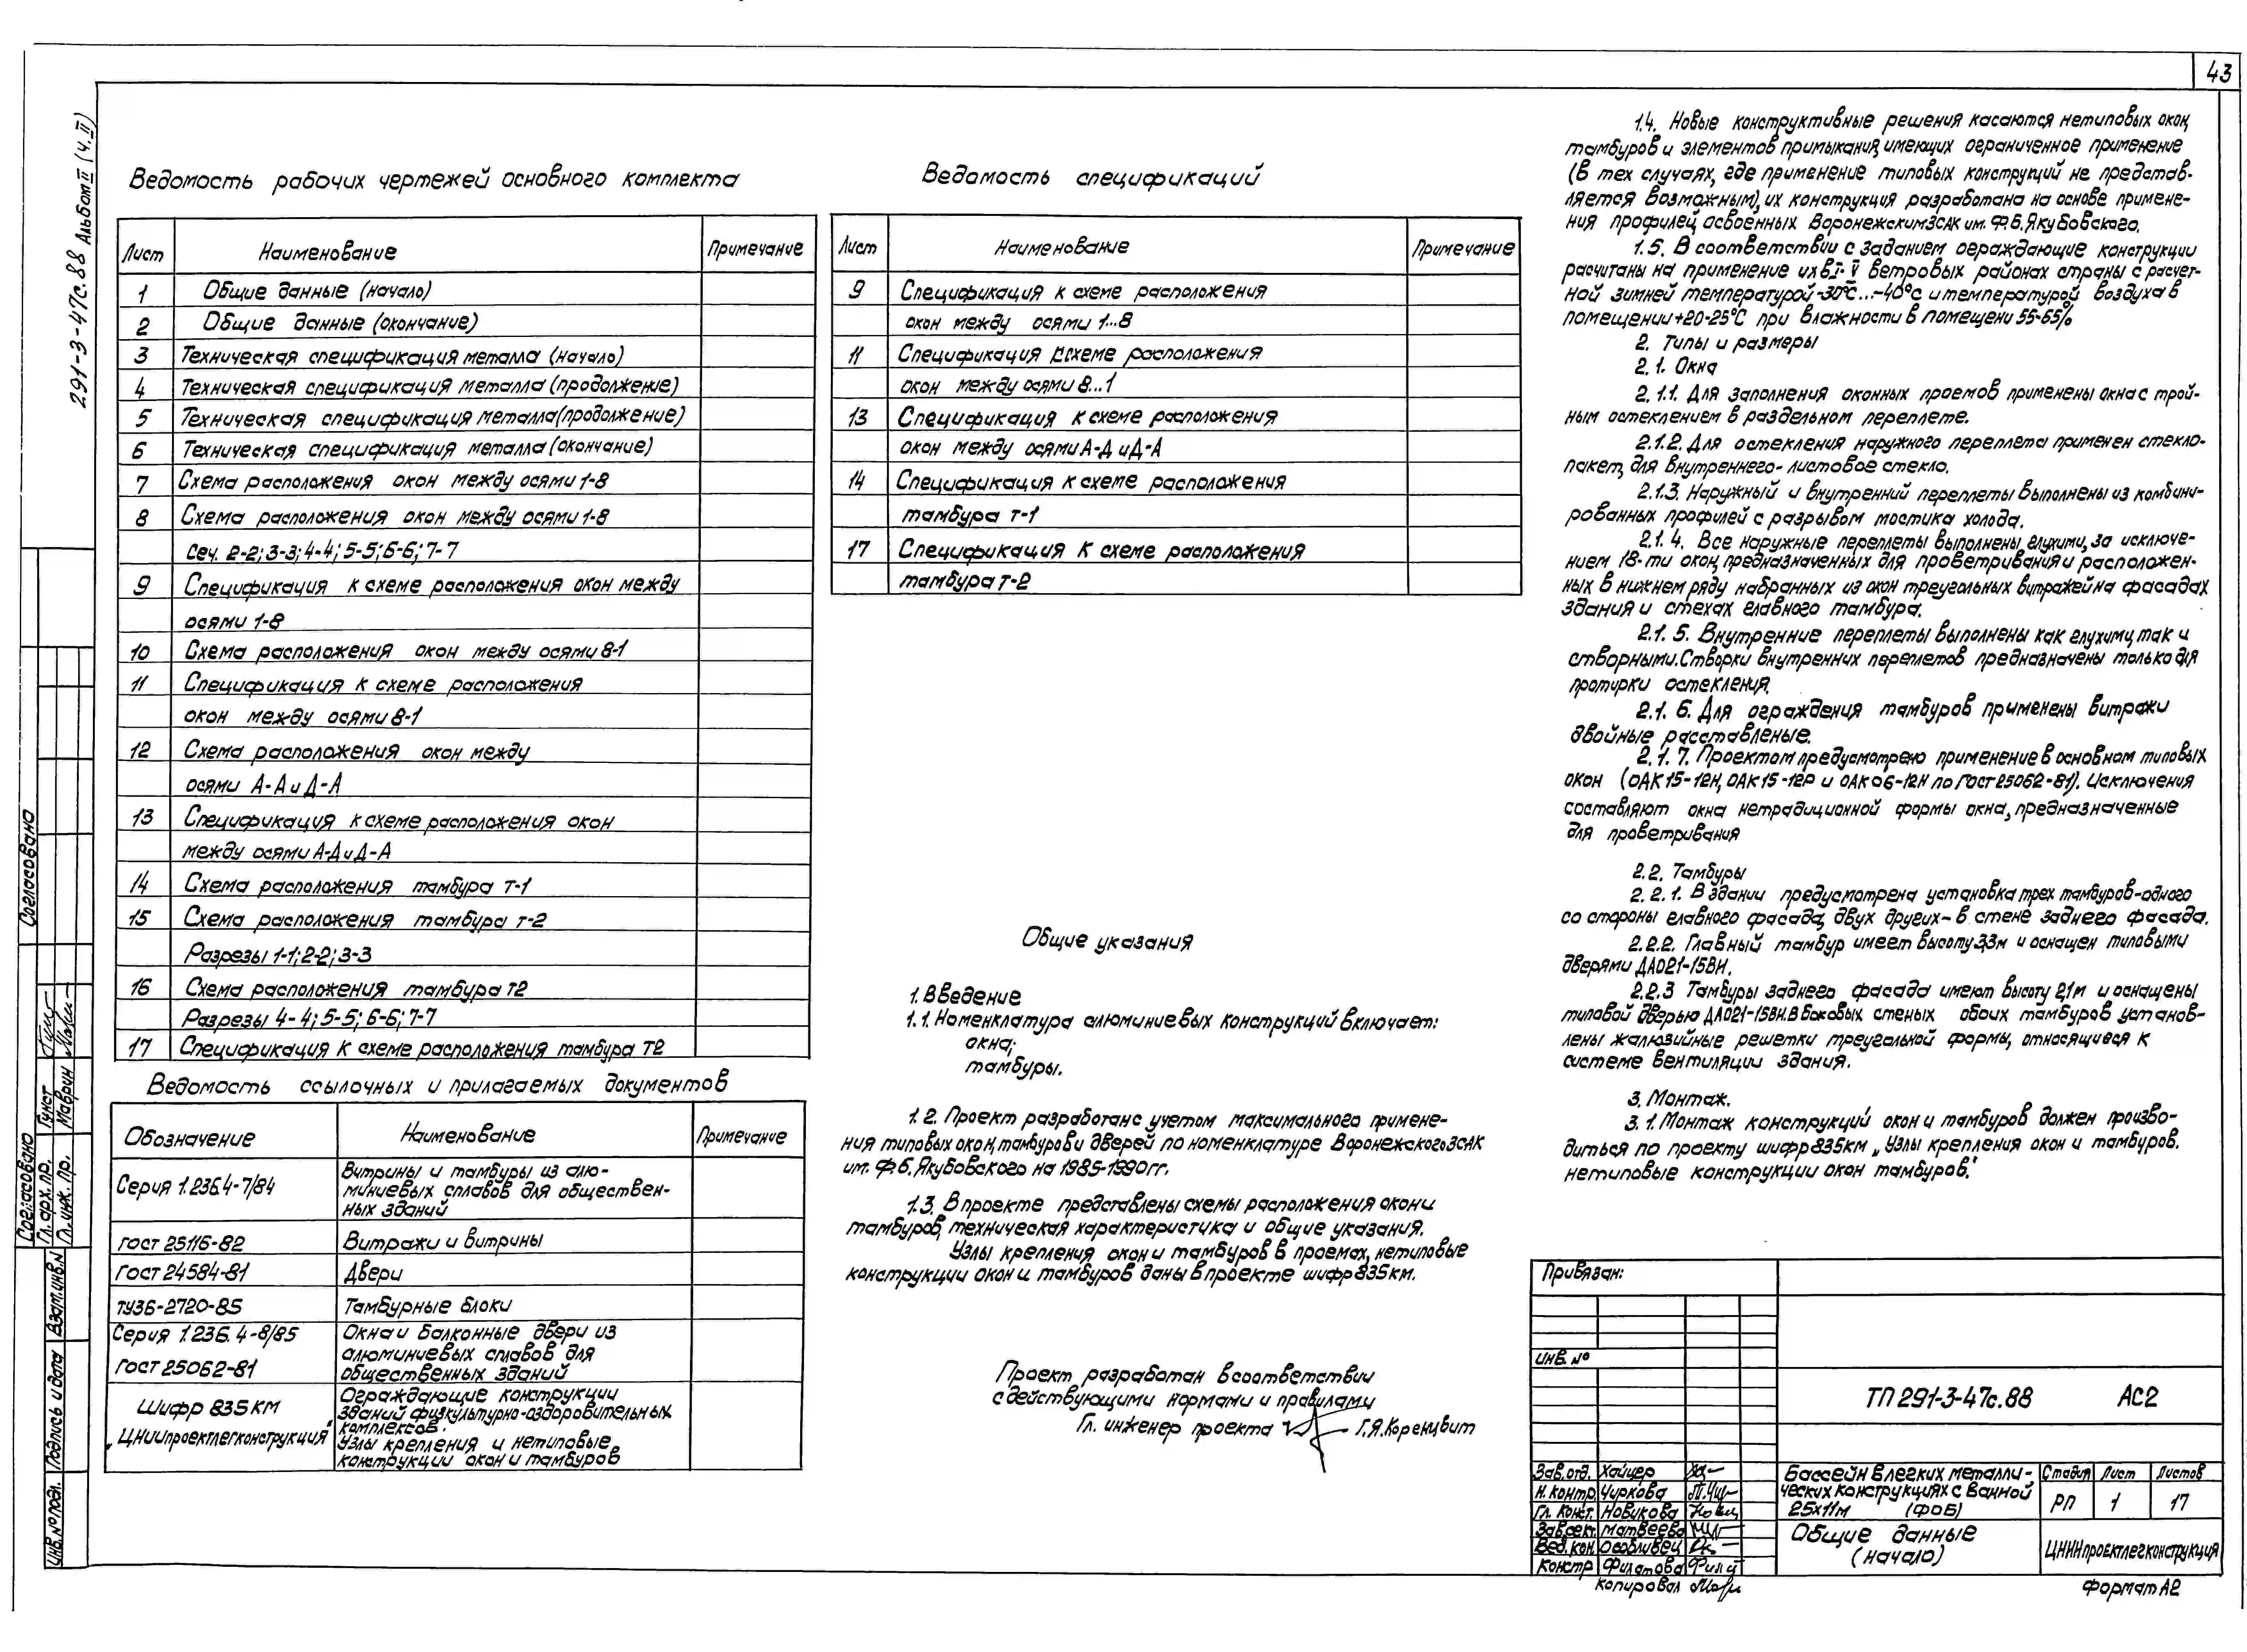 43
291-3-47с.88 Альбом II (ч. II)
Ведомость рабочих чертежей основного комплекта
Лист Наименование Примечание
1 Общие данные (начало)
2 Общие данные (окончание)
3 Техническая спецификация металла (начало)
4 Техническая спецификация металла (продолжение)
5 Техническая спецификация металла (продолжение)
6 Техническая спецификация металла (окончание)
7 Схема расположения окон между осями 1-8
8 Схема расположения окон между осями 1-8
Сеч. 2-2; 3-3; 4-4; 5-5; 6-6; 7-7
9 Спецификация к схеме расположения окон между
осями 1-8
10 Схема расположения окон между осями 8-1
11 Спецификация к схеме расположения
окон между осями 8-1
12 Схема расположения окон между
осями А-Д и Д-А
13 Спецификация к схеме расположения окон
между осями А-Д и Д-А
14 Схема расположения тамбура т-1
15 Схема расположения тамбура т-2
Разрезы 1-1; 2-2; 3-3
16 Схема расположения тамбура т2
Разрезы 4-4; 5-5; 6-6; 7-7
17 Спецификация к схеме расположения тамбура т2
Ведомость ссылочных и прилагаемых документов
Обозначение Наименование Примечание
Серия 1.236.4-7/84 Витрины и тамбуры из алю-
миниевых сплавов для обществен-
ных зданий
ГОСТ 25116-82 Витражи и витрины
ГОСТ 24584-81 Двери
ТУ36-2720-85 Тамбурные блоки
Серия 1.236.4-8/85 Окна и балконные двери из
алюминиевых сплавов для
ГОСТ 25062-81 общественных зданий
Шифр 835 КМ Ограждающие конструкции
зданий физкультурно-оздоровительных
комплексов.
„ЦНИИпроектлегконструкция" Узлы крепления и нетиповые
конструкции окон и тамбуров
Ведомость спецификаций
Лист Наименование Примечание
9 Спецификация к схеме расположения
окон между осями 1...8
11 Спецификация к схеме расположения
окон между осями 8...1
13 Спецификация к схеме расположения
окон между осями А-Д и Д-А
14 Спецификация к схеме расположения
тамбура т-1
17 Спецификация к схеме расположения
тамбура т-2
Общие указания
1. Введение
1.1. Номенклатура алюминиевых конструкций включает:
окна;
тамбуры.
1.2. Проект разработан с учетом максимального примене-
ния типовых окон, тамбуров и дверей по номенклатуре Воронежского ЗСАК
им. Ф.Б. Якубовского на 1985-1990 гг.
1.3. В проекте представлены схемы расположения окон и
тамбуров, техническая характеристика и общие указания.
Узлы крепления окон и тамбуров в проемах, нетиповые
конструкции окон и тамбуров даны в проекте шифр 835 км.
Проект разработан в соответствии
с действующими нормами и правилами
Гл. инженер проекта Г.Я. Коренцвит
1.4. Новые конструктивные решения касаются нетиповых окон,
тамбуров и элементов примыкания, имеющих ограниченное применение
(в тех случаях, где применение типовых конструкций не представ-
ляется возможным), их конструкция разработана на основе примене-
ния профилей, освоенных Воронежским ЗСАК им. Ф.Б. Якубовского.
1.5. В соответствии с заданием ограждающие конструкции
расчитаны на применение их в I-V ветровых районах страны с расчет-
ной зимней температурой -30°с...-40°с и температурой воздуха в
помещении +20-25°С при влажности в помещени 55-65%
2. Типы и размеры
2.1. Окна
2.1.1. Для заполнения оконных проемов применены окна с трой-
ным остеклением в раздельном переплете.
2.1.2. Для остекления наружного переплета применен стекло-
пакет, для внутреннего - листовое стекло.
2.1.3. Наружный и внутренний переплеты выполнены из комбини-
рованных профилей с разрывом мостика холода.
2.1.4. Все наружные переплеты выполнены глухими, за исключе-
нием 18-ти окон, предназначенных для проветривания и расположен-
ных в нижнем ряду набранных из окон треугольных витражей на фасадах
здания и стехах главного тамбура.
2.1.5. Внутренние переплеты выполнены как глухими, так и
створными. Створки внутренних переплетов предназначены только для
протирки остекления.
2.1.6. Для ограждения тамбуров применены витражи
двойные расставленые.
2.1.7. Проектом предусмотрено применение в основном типовых
окон (ОАК15-12Н, ОАК15-12Р и ОАК06-12Н по ГОСТ 25062-81). Исключения
составляют окна нетрадиционной формы окна, предназначенные
для проветривания
2.2. Тамбуры
2.2.1. В здании предусмотрена установка трех тамбуров - одного
со стороны главного фасада, двух других - в стене заднего фасада.
2.2.2. Главный тамбур имеет высоту 3,3м и оснащен типовыми
дверями ДАО21-15ВН.
2.2.3 Тамбуры заднего фасада имеют высоту 2,1м и оснащены
типовой дверью ДАО21-15ВН. В боковых стеных обоих тамбуров установ-
лены жалюзийные решетки треугольной формы, относящиеся к
системе вентиляции здания.
3. Монтаж.
3.1. Монтаж конструкций окон и тамбуров должен произво-
диться по проекту шифр 835км „Узлы крепления окон и тамбуров.
нетиповые конструкции окон тамбуров."
Привязан:
Инв. №
ТП 291-3-47с.88 АС2
Зав.отд. Хайцер
Н. контр Чиркова
Гл. конст. Новикова
Зав.сект. Матвеева
Вед. кон. Особливец
Констр Филатова
Бассейн в легких металли-
ческих конструкциях с ванной
25х11м (ФОБ)
Стадия Лист Листов
РП 1 17
Общие данные
(начало)
ЦНИИпроектлегконструкция
Копировал
Формат А2
Согласовано
Согласовано
Гл. арх. пр. Гунст
Гл. инж. пр. Маврин
Взам. инв. N
Подпись и дата
Инв. № подл.